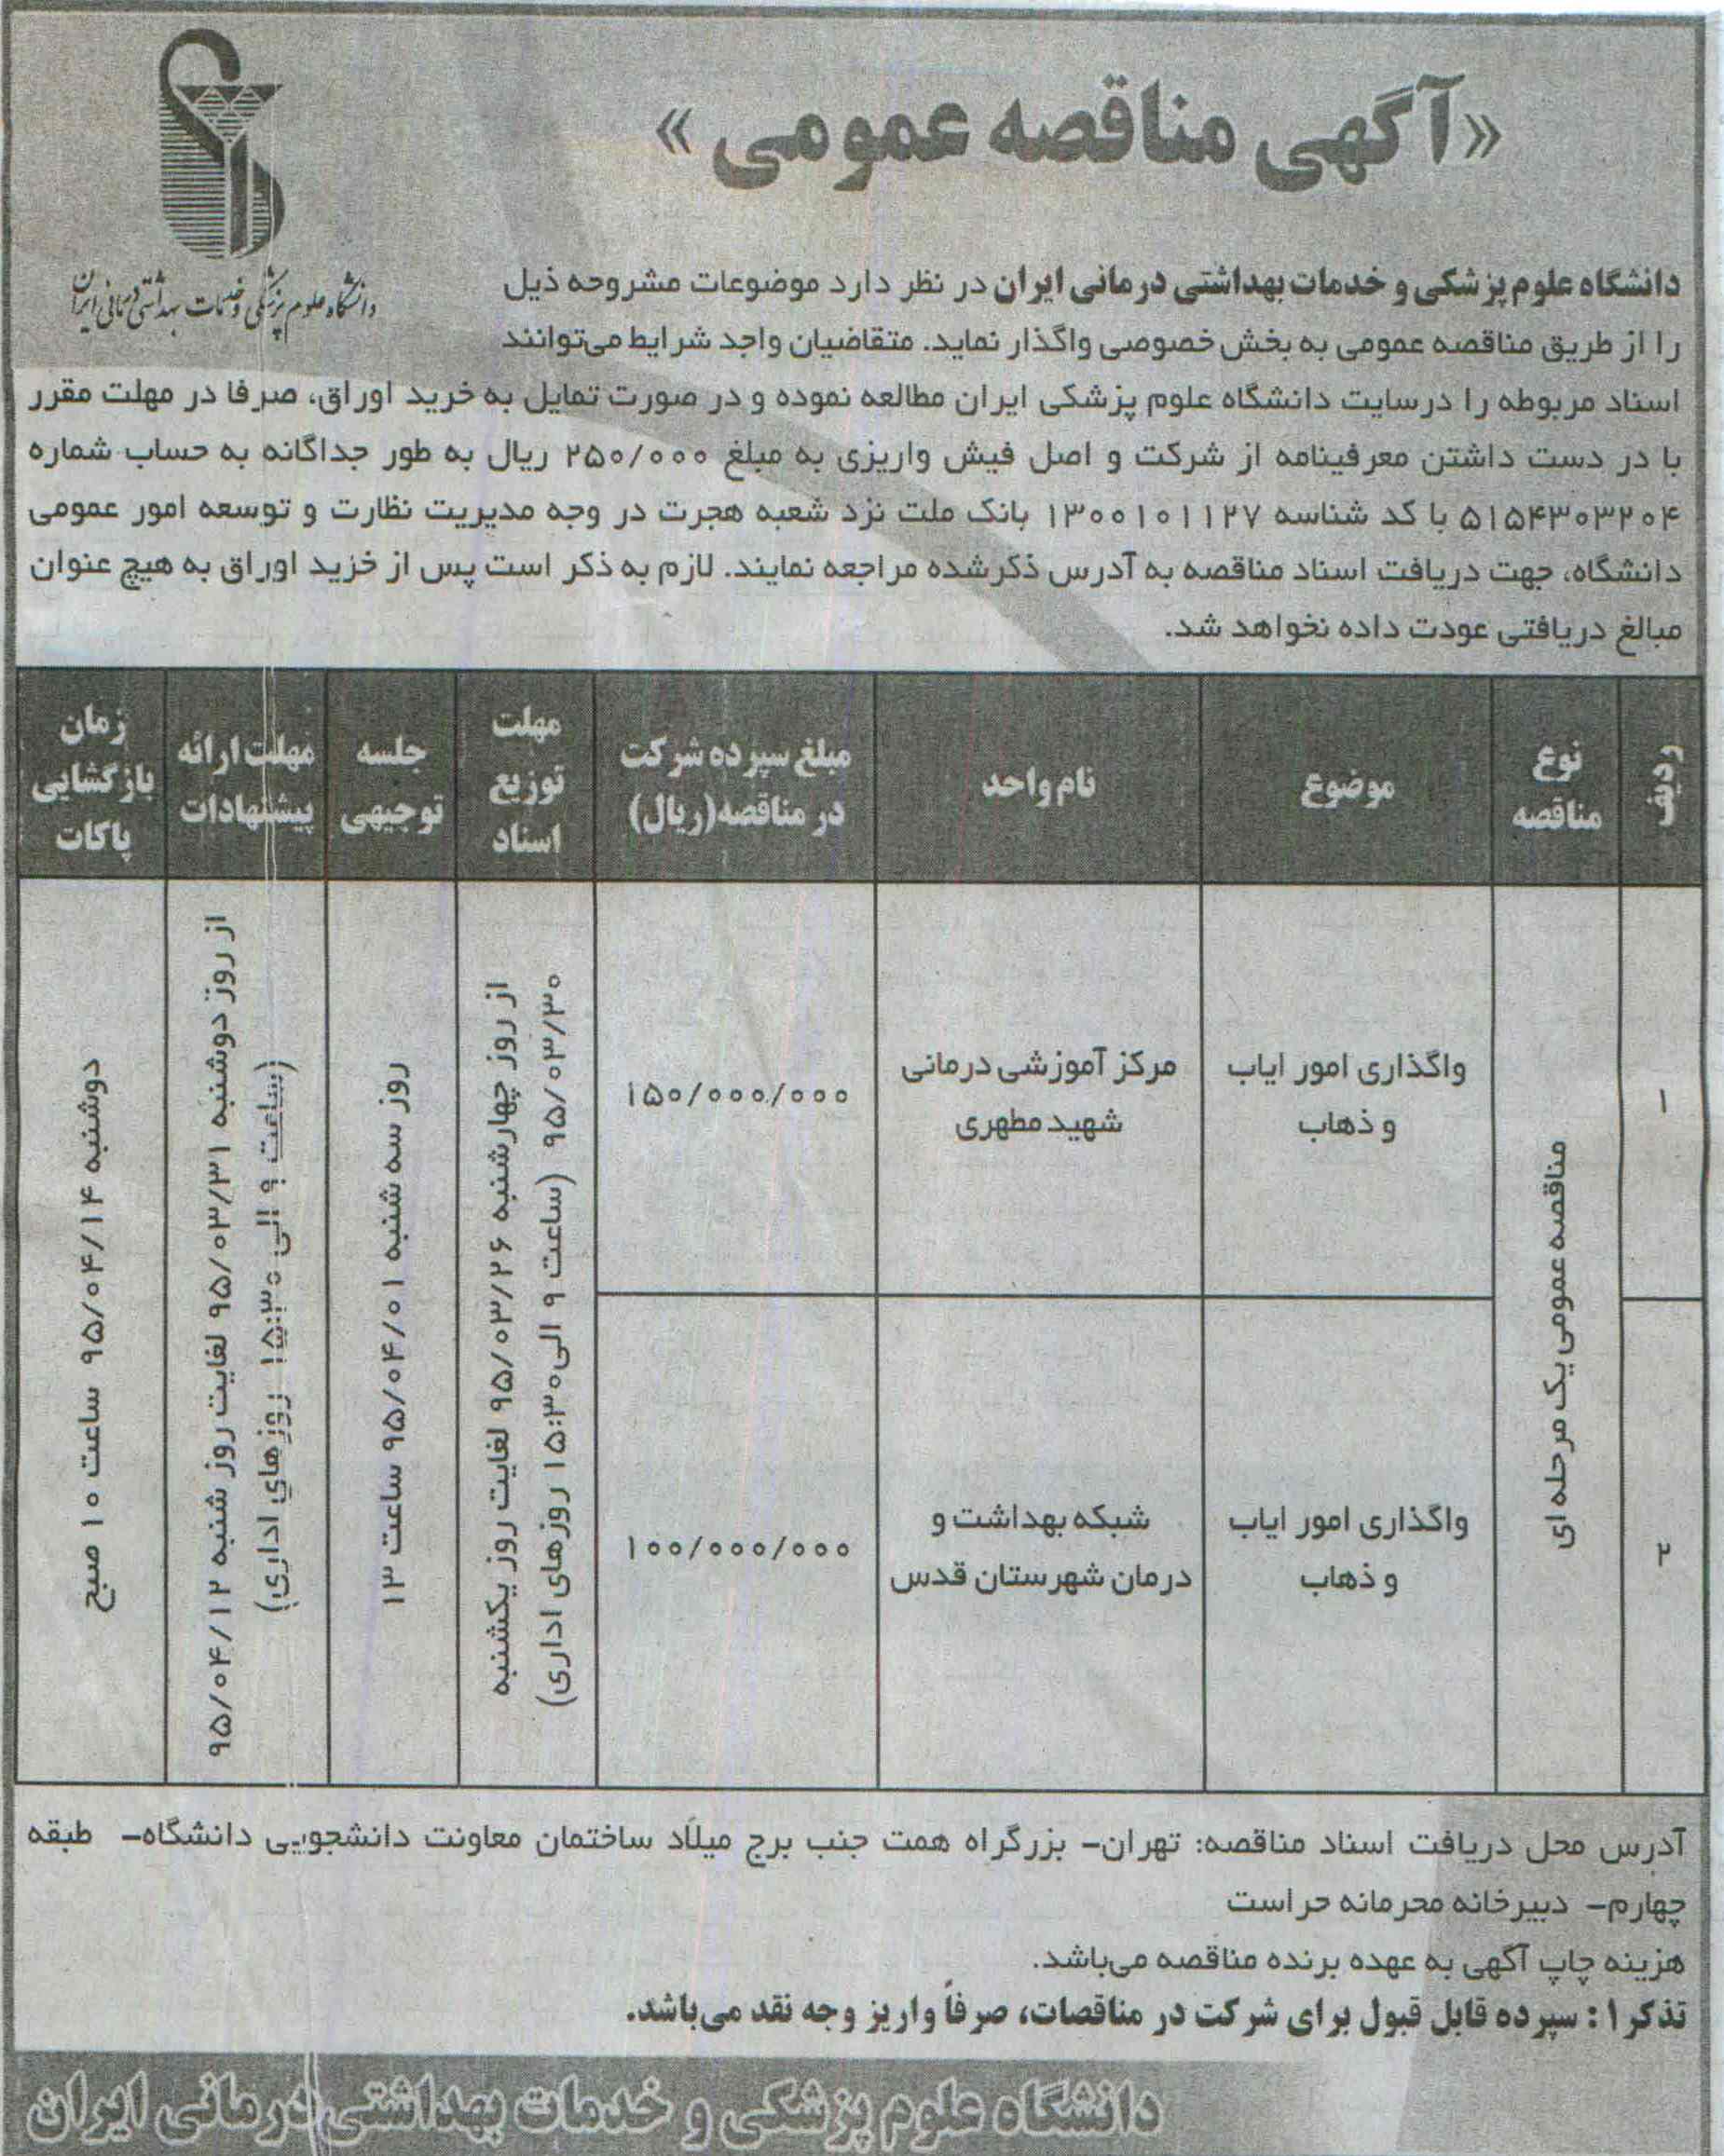 «آگهی مناقصه عمومی»
دانشگاه علوم پزشکی و خدمات بهداشتی درمانی ایران
دانشگاه علوم پزشکی و خدمات بهداشتی درمانی ایران در نظر دارد موضوعات مشروحه ذیل
را از طریق مناقصه عمومی به بخش خصوصی واگذار نماید. متقاضیان واجد شرایط می‌توانند
اسناد مربوطه را درسایت دانشگاه علوم پزشکی ایران مطالعه نموده و در صورت تمایل به خرید اوراق، صرفا در مهلت مقرر
با در دست داشتن معرفینامه از شرکت و اصل فیش واریزی به مبلغ ۲۵۰/۰۰۰ ریال به طور جداگانه به حساب شماره
۵۱۵۴۳۰۳۲۰۴ با کد شناسه ۱۳۰۰۱۰۱۱۲۷ بانک ملت نزد شعبه هجرت در وجه مدیریت نظارت و توسعه امور عمومی
دانشگاه، جهت دریافت اسناد مناقصه به آدرس ذکرشده مراجعه نمایند. لازم به ذکر است پس از خزید اوراق به هیچ عنوان
مبالغ دریافتی عودت داده نخواهد شد.
ردیف
نوع
مناقصه
موضوع
نام واحد
مبلغ سپرده شرکت
در مناقصه(ریال)
مهلت
توزیع
اسناد
جلسه
توجیهی
مهلت ارائه
پیشنهادات
زمان
بازگشایی
پاکات
۱
مناقصه عمومی یک مرحله ای
واگذاری امور ایاب
و ذهاب
مرکز آموزشی درمانی
شهید مطهری
۱۵۰/۰۰۰/۰۰۰
از روز چهارشنبه ۹۵/۰۳/۲۶ لغایت روز یکشنبه
۹۵/۰۳/۳۰ (ساعت ۹ الی۱۵:۳۰ روزهای اداری)
روز سه شنبه ۹۵/۰۴/۰۱ ساعت ۱۳
از روز دوشنبه ۹۵/۰۳/۳۱ لغایت روز شنبه ۹۵/۰۴/۱۲
(ساعت ۹ الی ۱۵:۳۰ روزهای اداری)
دوشنبه ۹۵/۰۴/۱۴ ساعت ۱۰ صبح
۲
واگذاری امور ایاب
و ذهاب
شبکه بهداشت و
درمان شهرستان قدس
۱۰۰/۰۰۰/۰۰۰
آدرس محل دریافت اسناد مناقصه: تهران– بزرگراه همت جنب برج میلاد ساختمان معاونت دانشجویی دانشگاه– طبقه
چهارم– دبیرخانه محرمانه حراست
هزینه چاپ آگهی به عهده برنده مناقصه می‌باشد.
تذکر۱: سپرده قابل قبول برای شرکت در مناقصات، صرفاً واریز وجه نقد می‌باشد.
دانشگاه علوم پزشکی و خدمات بهداشتی درمانی ایران